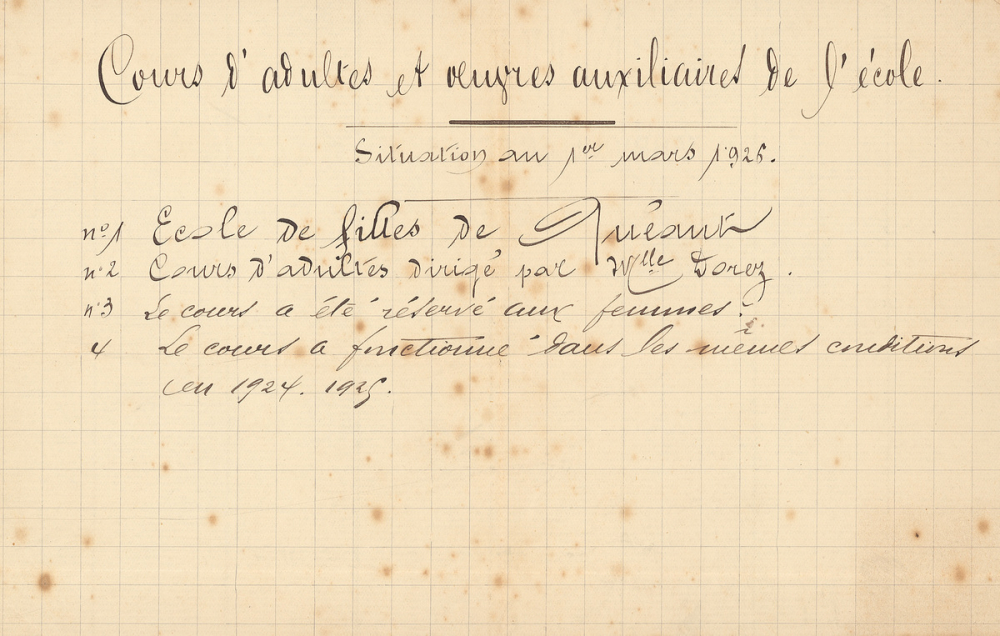 Cours d'adultes et œuvres auxiliaires de l'école.
Situation au 1er mars 1926.
n°1 Ecole de filles de Quéant
n°2 Cours d'adultes dirigé par Mlle Dorez.
n°3 Le cours a été réservé aux femmes.
4 Le cours a fonctionné dans les mêmes conditions
en 1924. 1925.